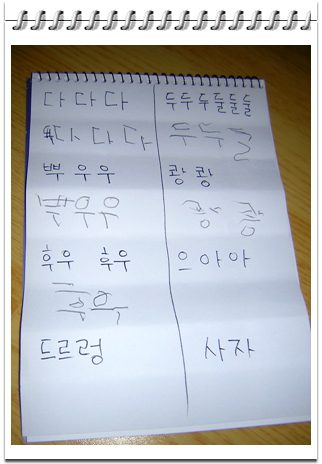 다 다 다
따 다 다
뿌 우 우
뿌 우 우
후우 후우
드르렁
두두두둘둘둘
두두둘
쾅 쾅
쾅 쾅
으 아 아
사자